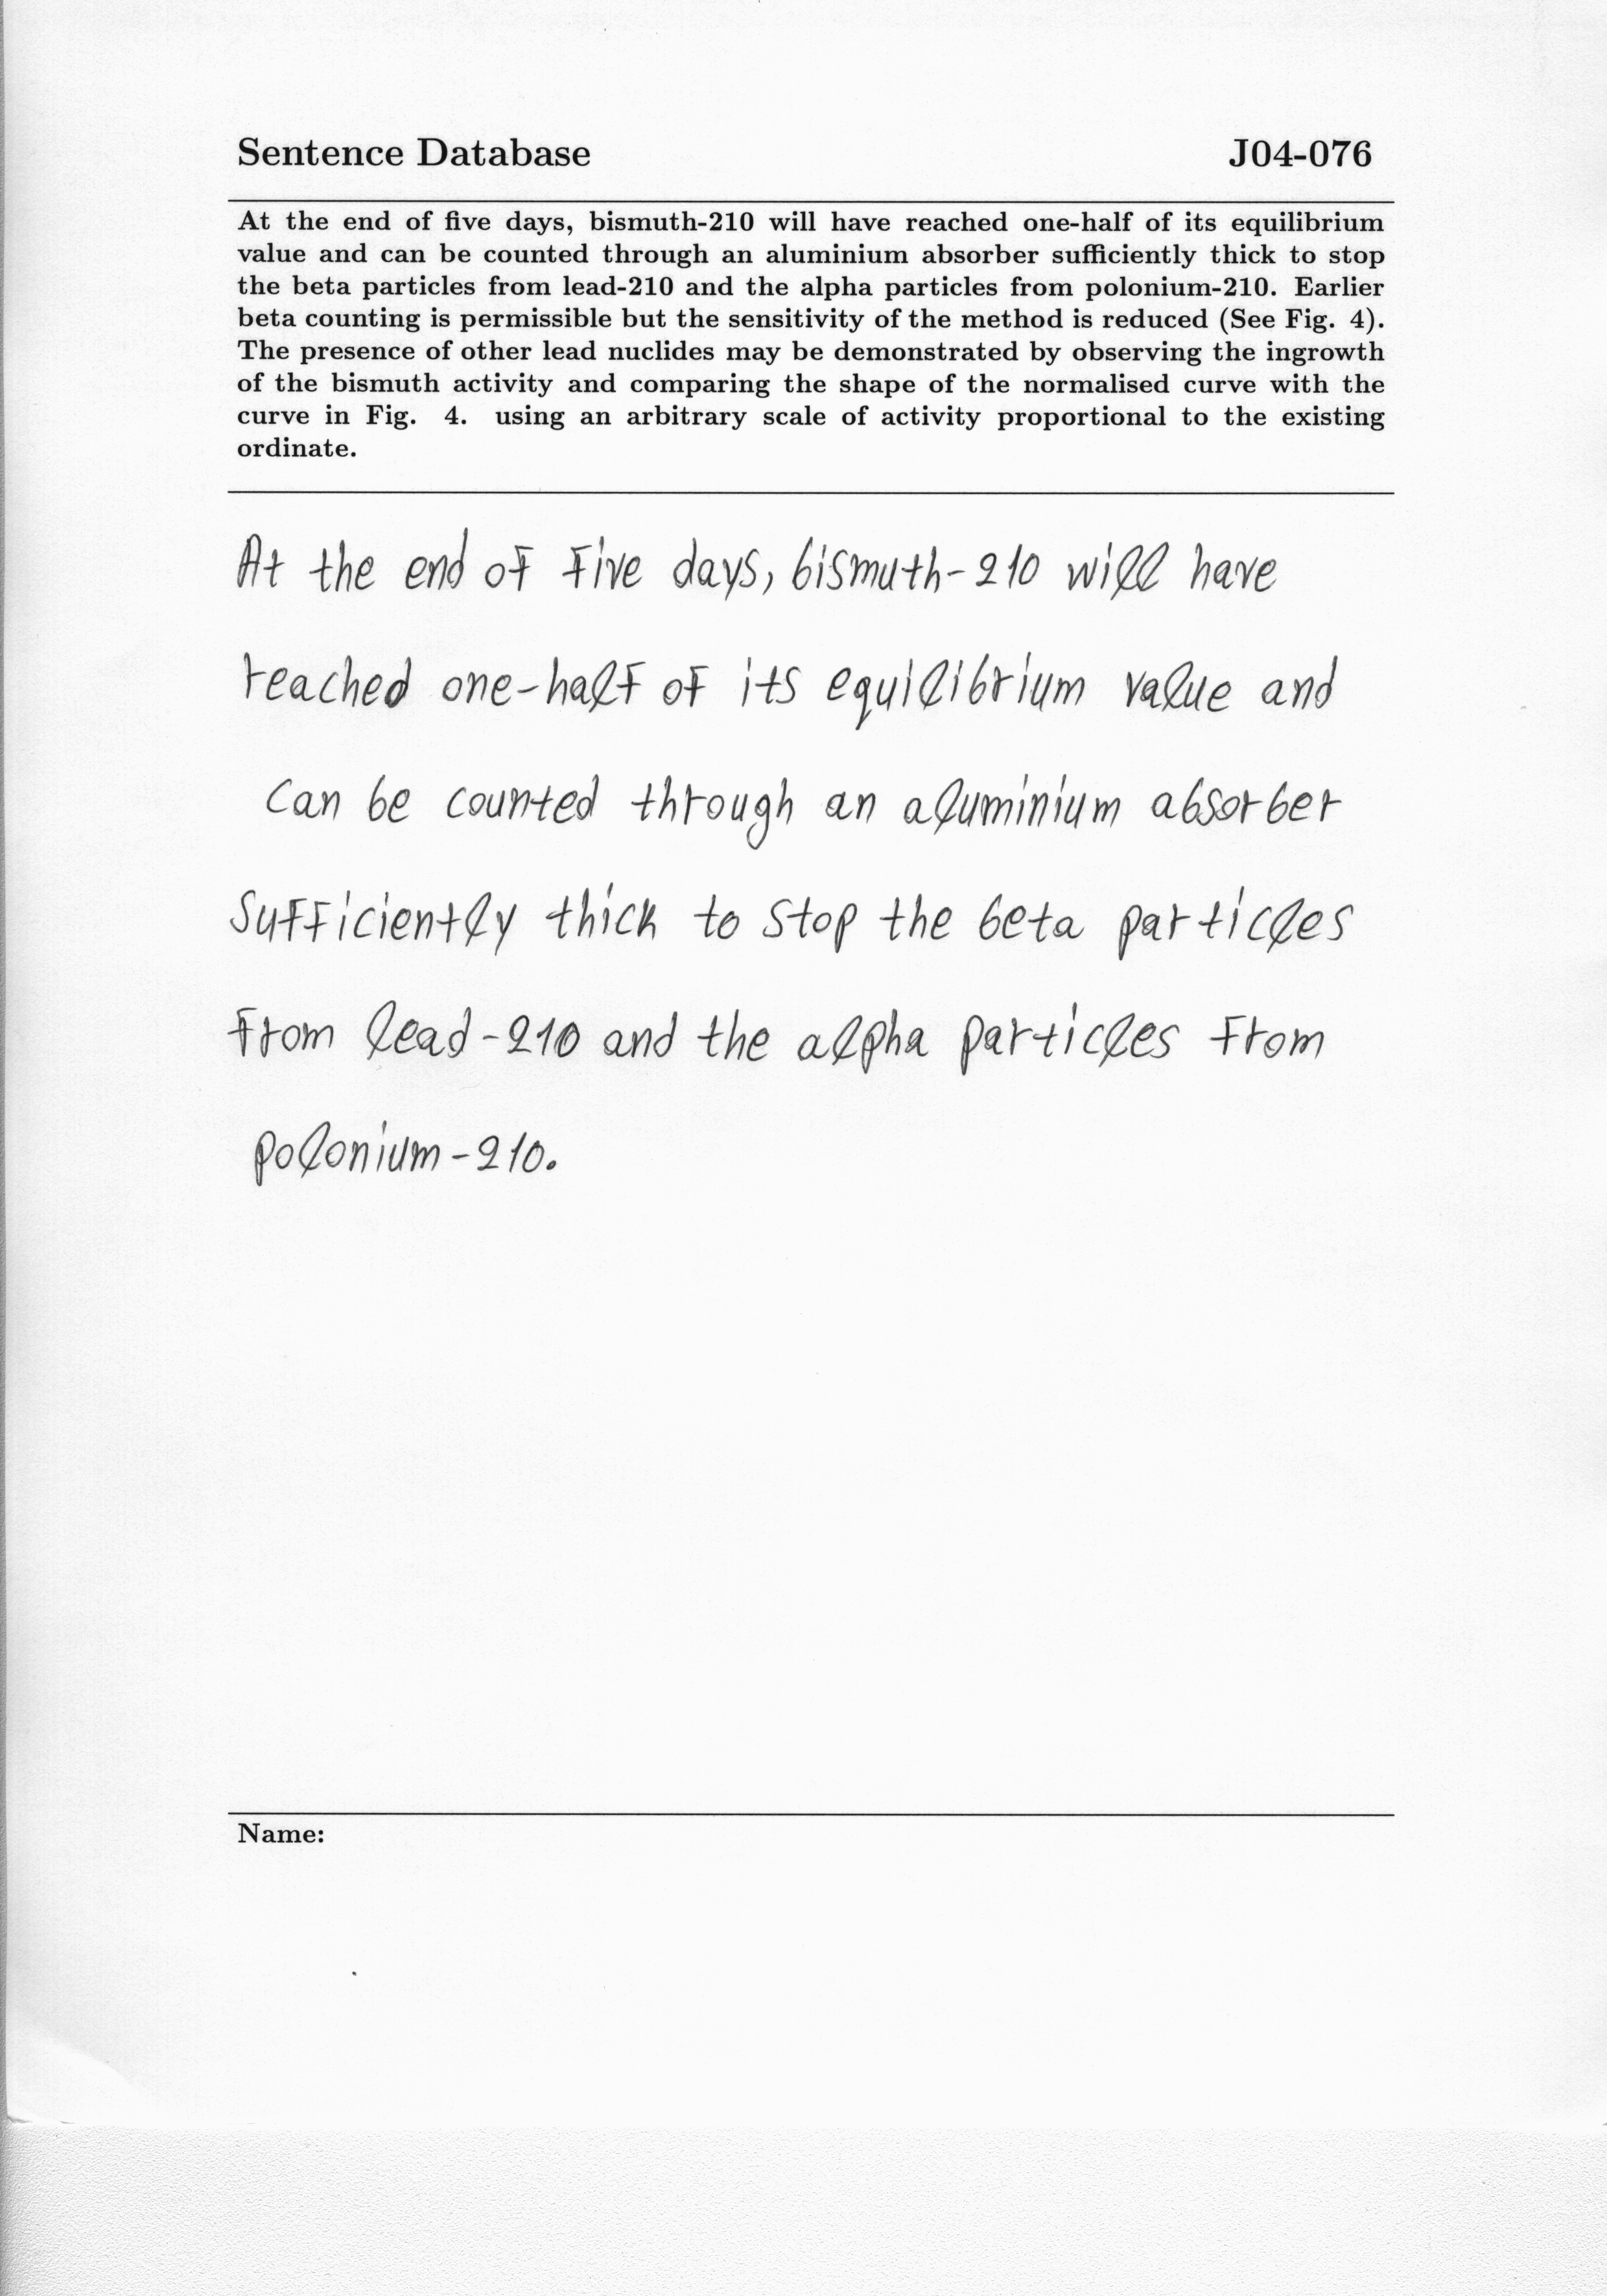 Sentence Database J04-076
At the end of five days, bismuth-210 will have reached one-half of its equilibrium
value and can be counted through an aluminium absorber sufficiently thick to stop
the beta particles from lead-210 and the alpha particles from polonium-210. Earlier
beta counting is permissible but the sensitivity of the method is reduced (See Fig. 4).
The presence of other lead nuclides may be demonstrated by observing the ingrowth
of the bismuth activity and comparing the shape of the normalised curve with the
curve in Fig. 4. using an arbitrary scale of activity proportional to the existing
ordinate.
At the end of five days, bismuth-210 will have
reached one-half of its equilibrium value and
can be counted through an aluminium absorber
sufficiently thick to stop the beta particles
from lead-210 and the alpha particles from
polonium-210.
Name: